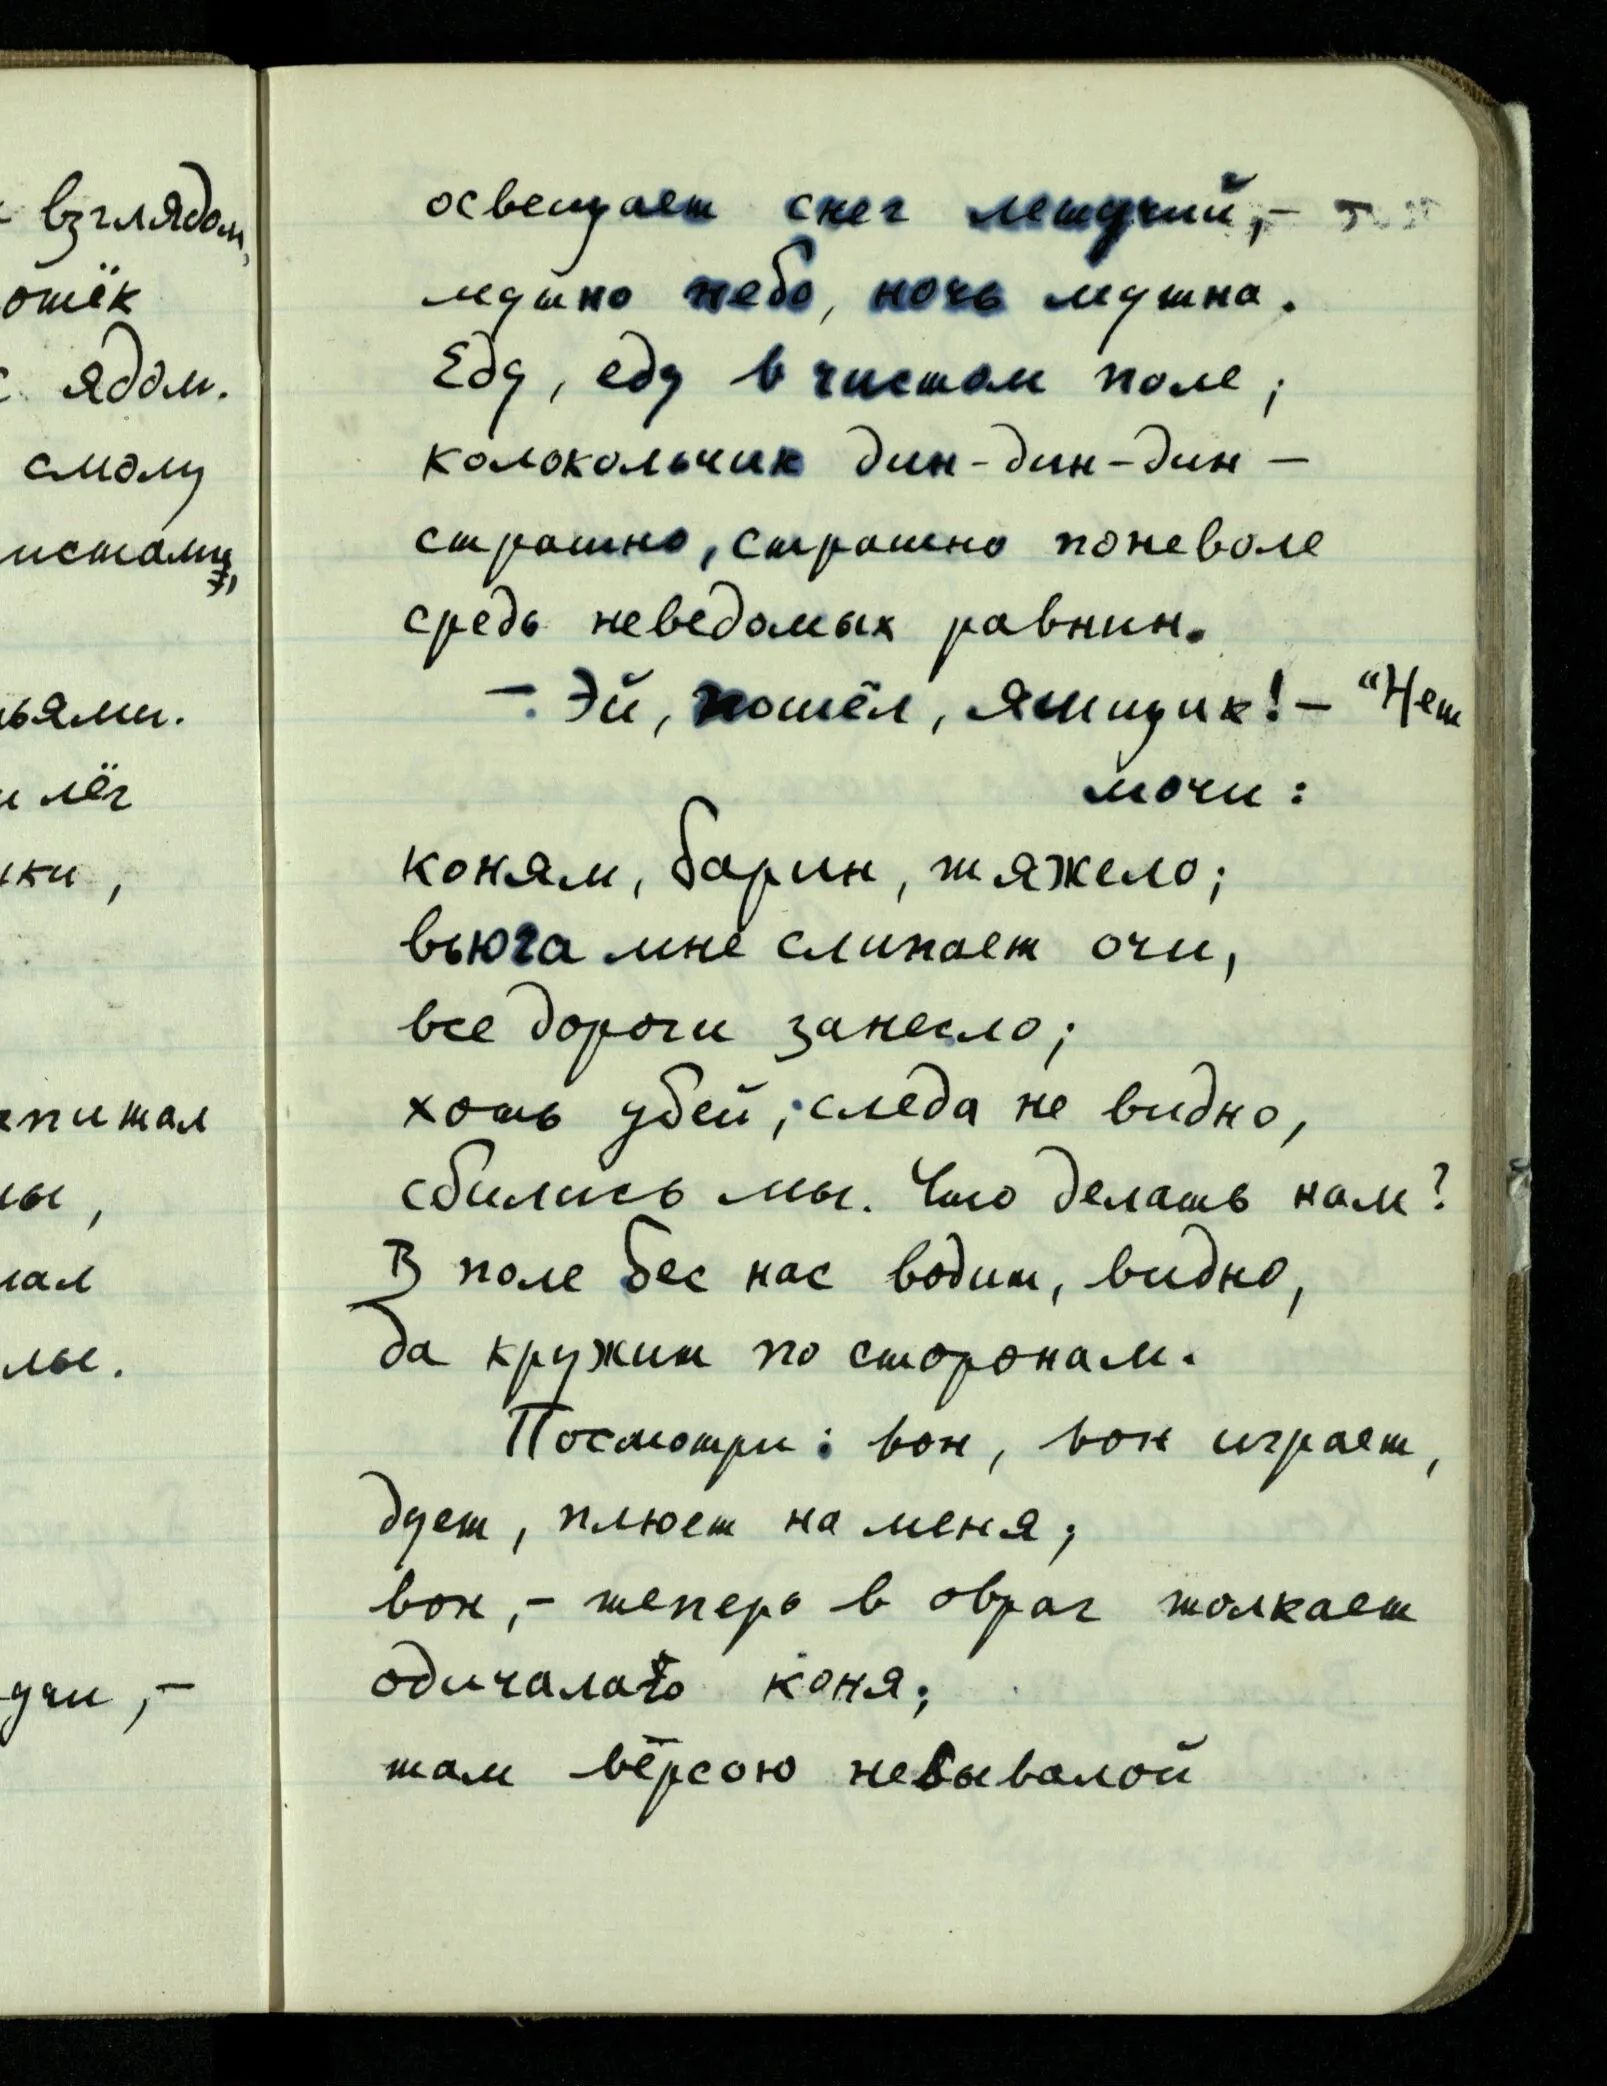 взглядом,
отёк
ядом.
смолу
листами,
ьями.
лёг
ки,
питал
ы,
лы.
освещает снег летучий,–
мутно небо, ночь мутна.
Еду, еду в чистом поле;
колокольчик дин-дин-дин –
страшно, страшно поневоле
средь неведомых равнин.
– Эй, пошёл, ямщик! – "Нет
мочи:
коням, барин, тяжело;
вьюга мне слипает очи,
все дороги занесло;
хоть убей, следа не видно,
сбились мы. Что делать нам?
В поле бес нас водит, видно,
да кружит по сторонам.
Посмотри: вон, вон играет,
дует, плюет на меня;
вон,– теперь в овраг толкает
одичалаго коня;
там вёрсою небывалой